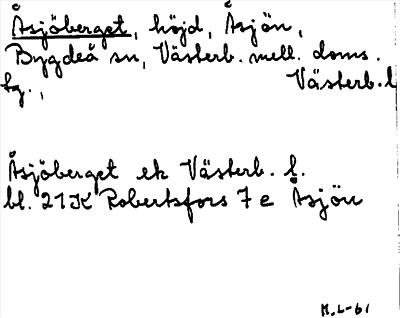 Åsjöberget, höjd, Åsjön,
Bygdeå sn, Västerb. mell. doms.
tg., Västerb. l
Åsjöberget ek Västerb. l.
bl. 21K Robertsfors 7 e Åsjön
M.L-61